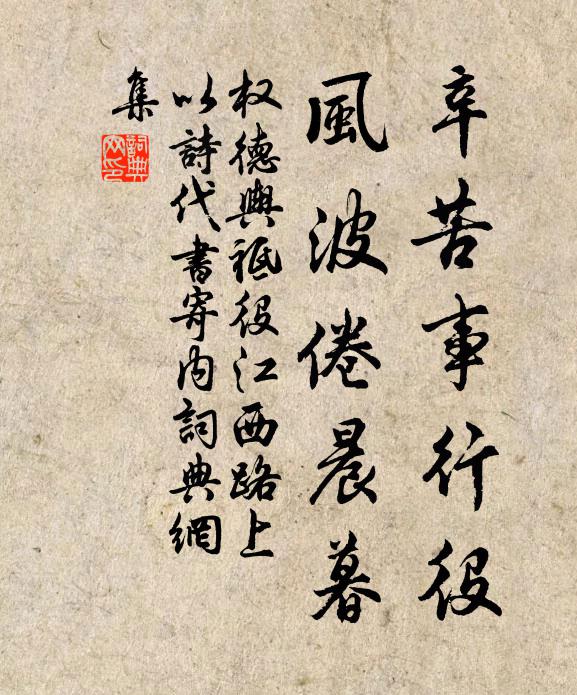 辛苦事行役
風波倦晨暮
权德與祗役江西路上
以詩代書寄内詞典網
集
詞典
网印